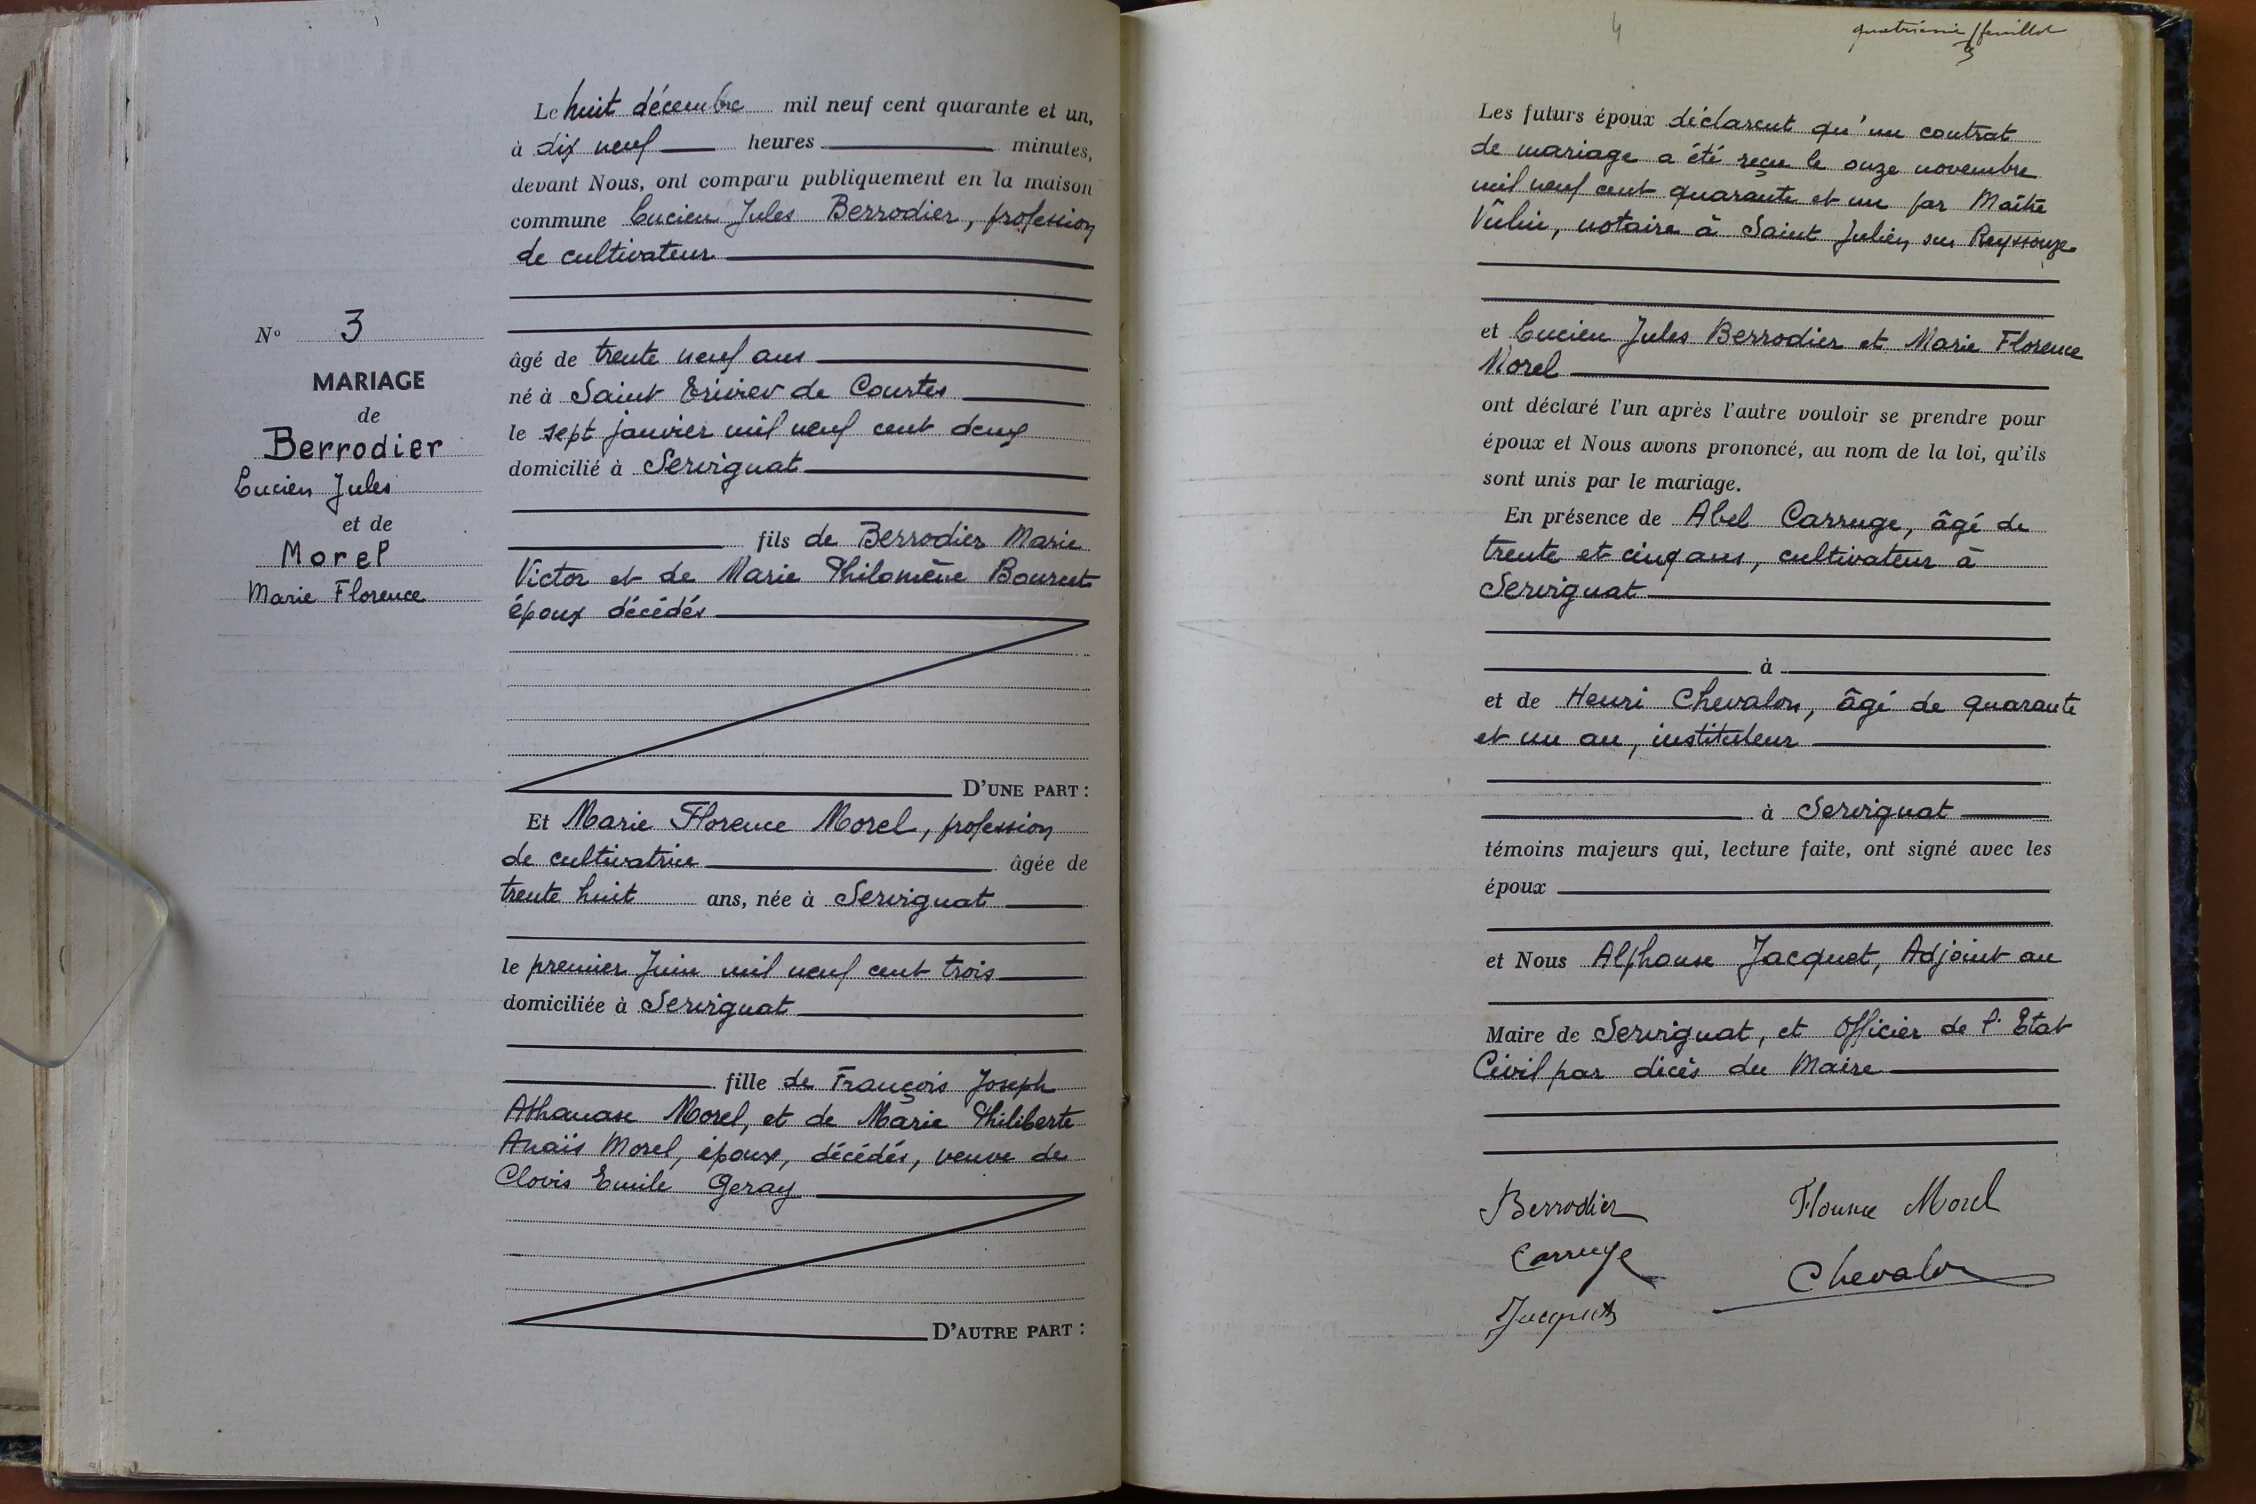 Le huit décembre mil neuf cent quarante et un,
à dix neuf heures minutes,
devant Nous, ont comparu publiquement en la maison
commune Lucien Jules Berrodier, profession
de cultivateur
N° 3
MARIAGE
de
Berrodier
Lucien Jules
et de
Morel
Marie Florence
âgé de trente neuf ans
né à Saint Trivier de Courtes
le sept janvier mil neuf cent deux
domicilié à Servignat
fils de Berrodier Marie
Victor et de Marie Philomène
époux décédés
D'UNE PART :
Et Marie Florence Morel, profession
de cultivatrice âgée de
trente huit ans, née à Servignat
le premier Juin mil neuf cent trois
domiciliée à Servignat
fille de François Joseph
Athanase Morel, et de Marie Philiberte
Anaïs Morel, époux, décédés, veuve de
Clovis Emile Geray
D'AUTRE PART :
4
quatrième feuillet
Les futurs époux déclarent qu'un contrat
de mariage a été reçu le onze novembre
mil neuf cent quarante et un par Maître
notaire à Saint Julien sur Reyssouze
et Lucien Jules Berrodier et Marie Florence
Morel
ont déclaré l'un après l'autre vouloir se prendre pour
époux et Nous avons prononcé, au nom de la loi, qu'ils
sont unis par le mariage.
En présence de Abel Carruge, âgé de
trente et cinq ans, cultivateur à
Servignat
à
et de Henri Chevalon, âgé de quarante
et un an, instituteur
à Servignat
témoins majeurs qui, lecture faite, ont signé avec les
époux
et Nous Alphonse Jacquet, Adjoint au
Maire de Servignat, et Officier de l'Etat
Civil par décès du Maire
Berrodier Florence Morel
Carruge Chevalon
Jacquet